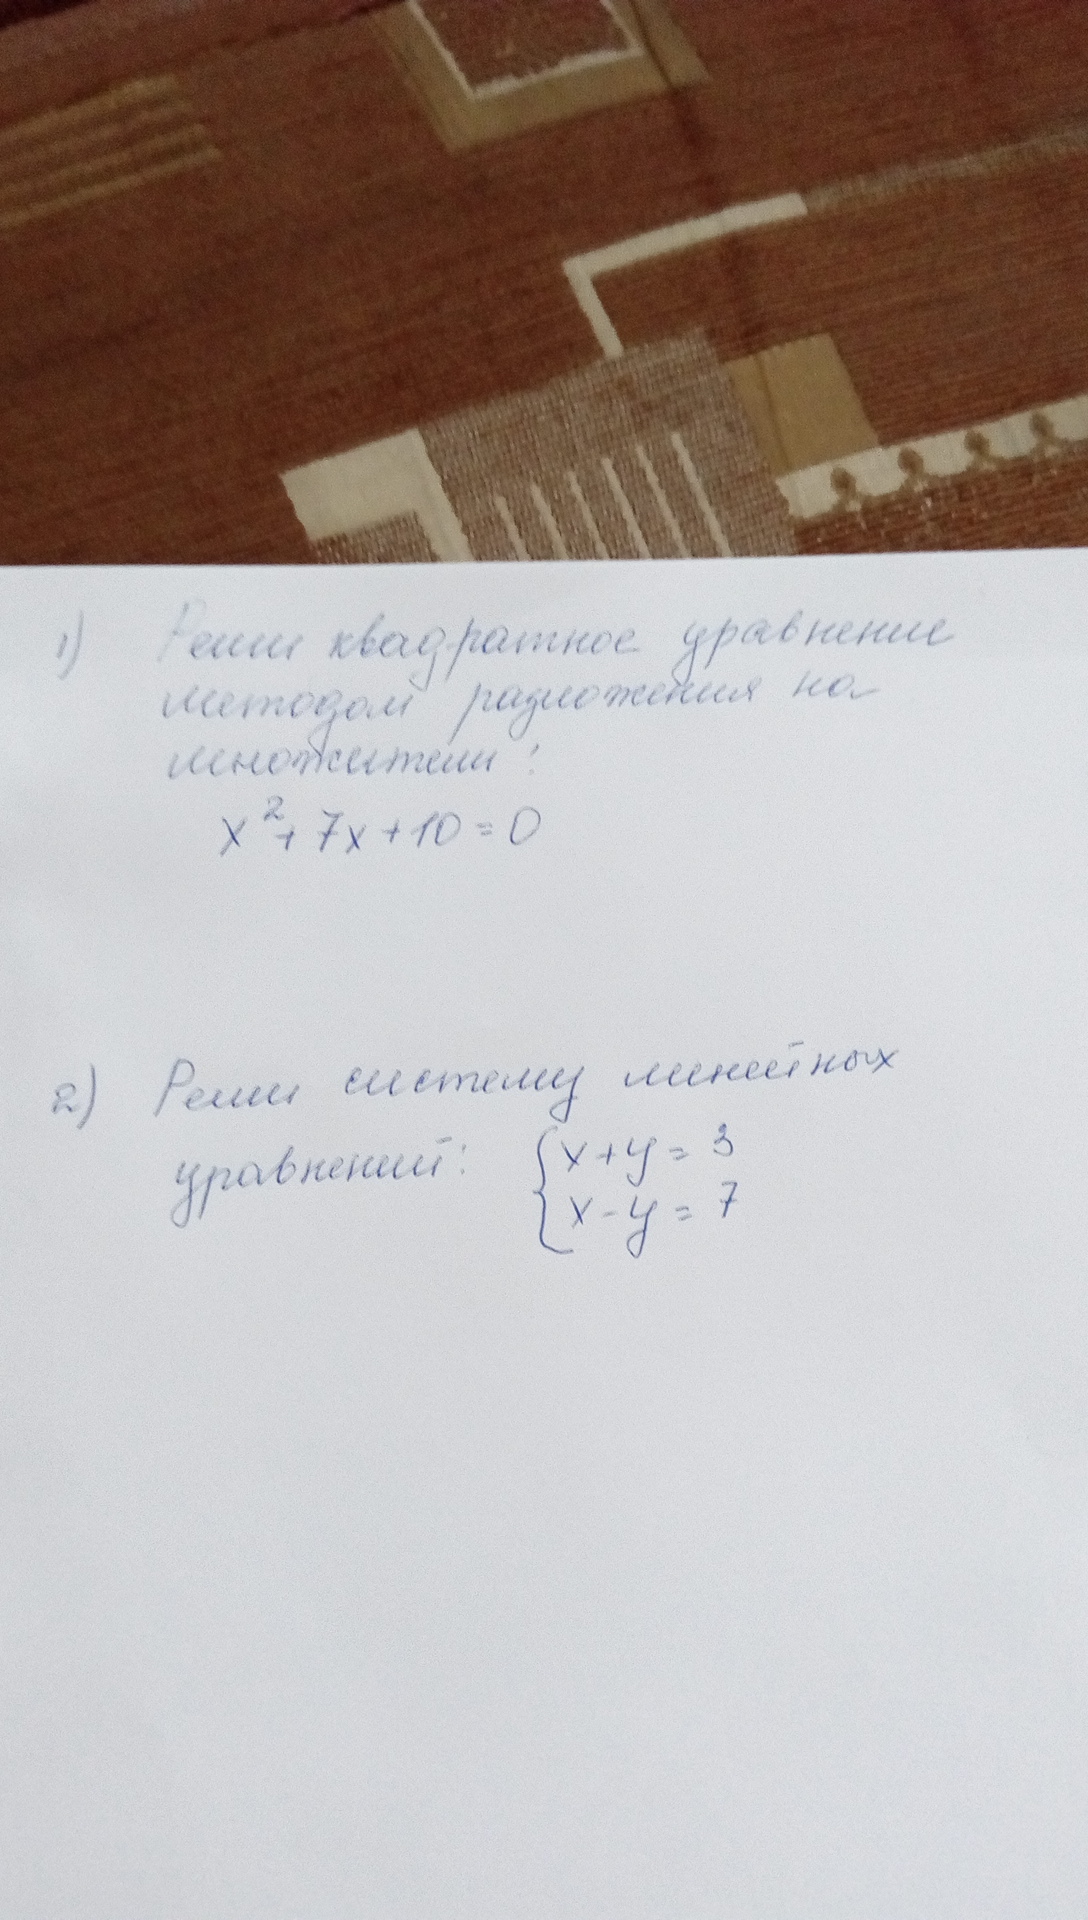 1) Реши квадратное уравнение
методом разложения на
множители:
x²+7x+10=0
2) Реши систему линейных
уравнений: { x+y=3
x-y=7